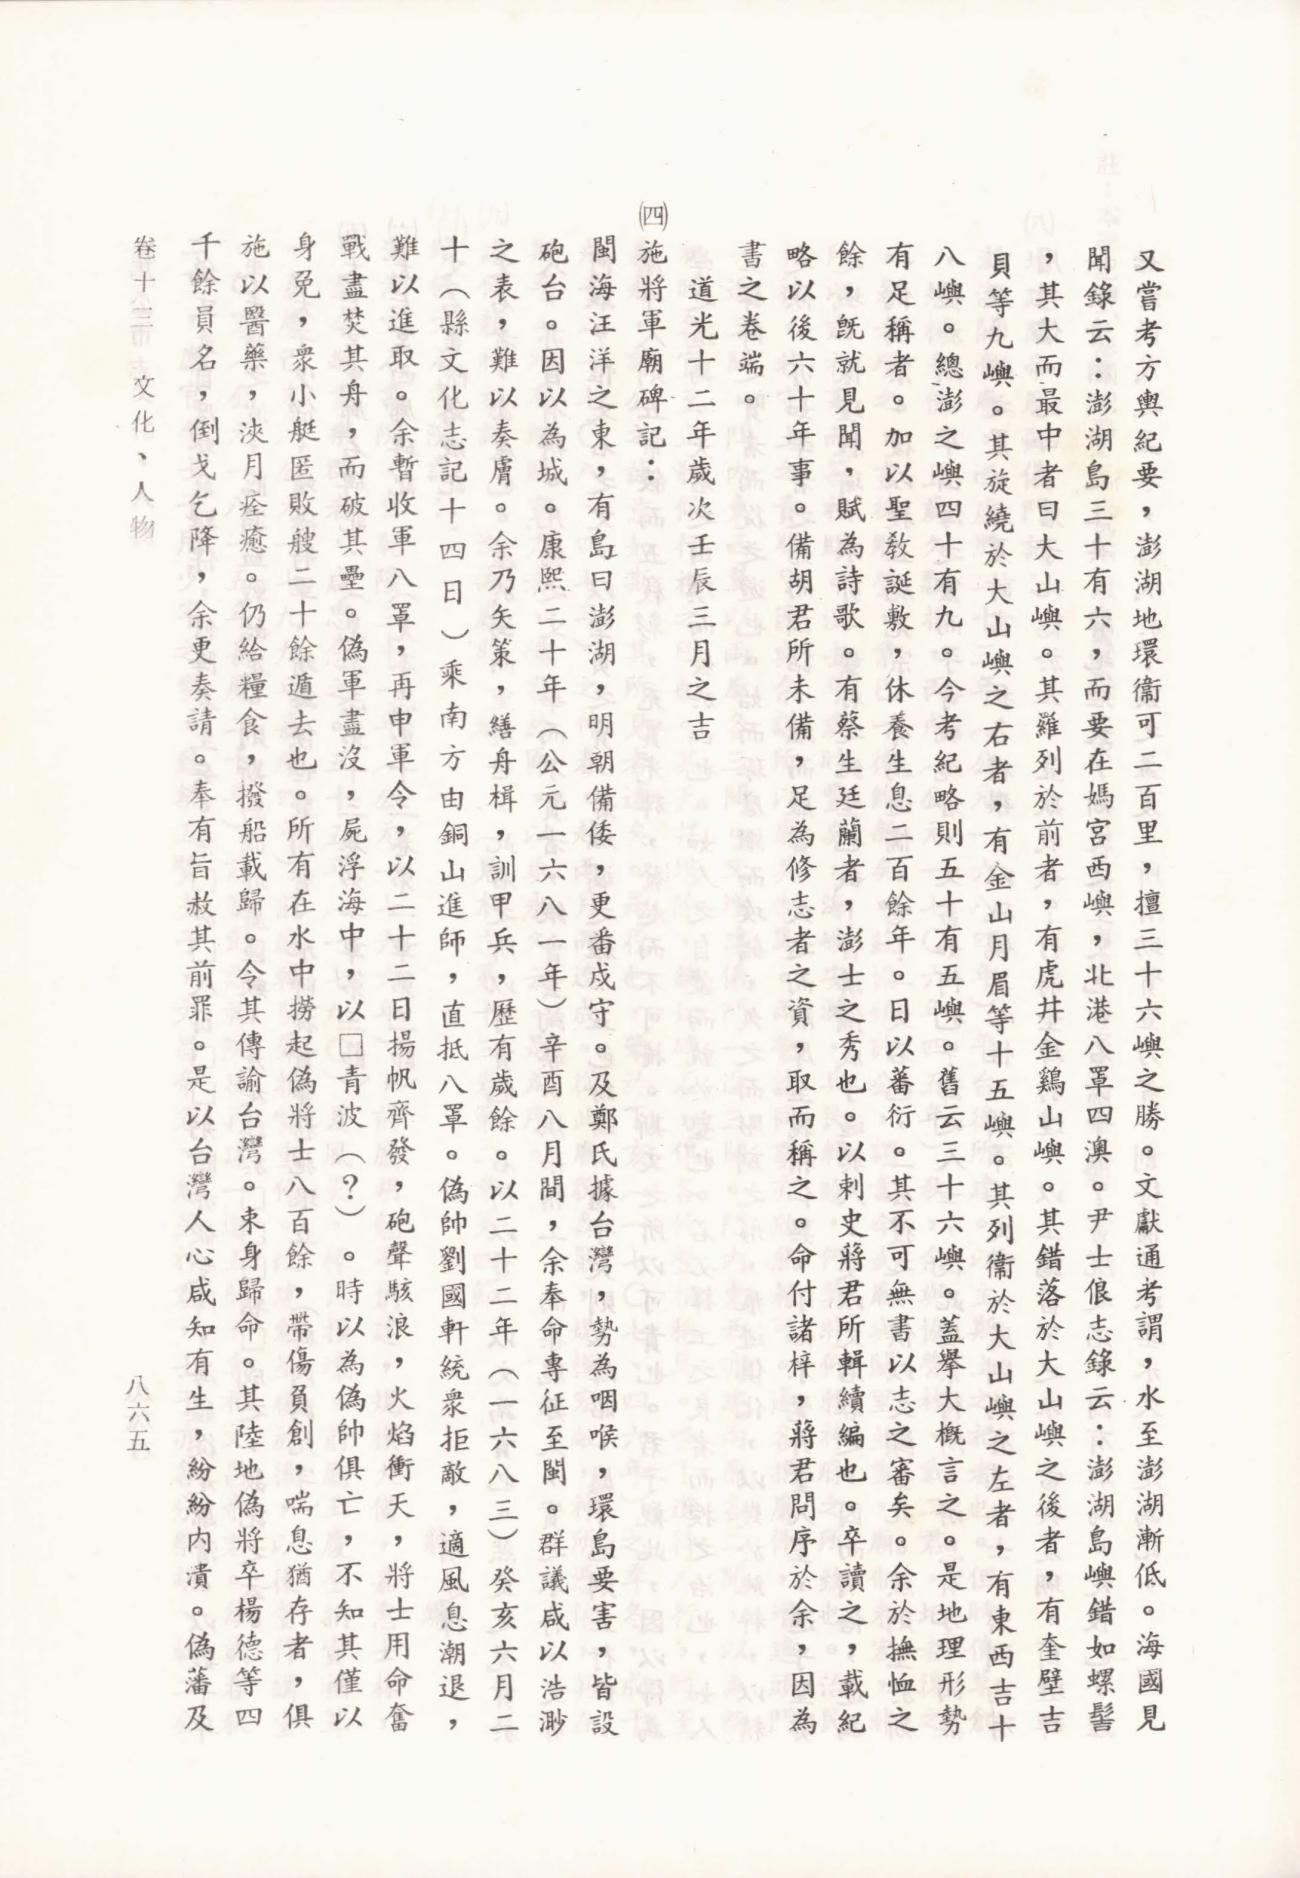 又嘗考方輿紀要，澎湖地環衞可二百里，擅三十六嶼之勝。文獻通考謂，水至澎湖漸低。海國見
聞錄云：澎湖島三十有六，而要在媽宮西嶼，北港八罩四澳。尹士俍志錄云：澎湖島嶼錯如螺髻
，其大而最中者曰大山嶼。其羅列於前者，有虎井金鷄山嶼。其錯落於大山嶼之後者，有奎壁吉
貝等九嶼。其旋繞於大山嶼之右者，有金山月眉等十五嶼。其列衞於大山嶼之左者，有東西吉十
八嶼。總澎之嶼四十有九。今考紀略則五十有五嶼。舊云三十六嶼。蓋擧大概言之。是地理形勢
有足稱者。加以聖敎誕敷，休養生息二百餘年。日以蕃衍。其不可無書以志之審矣。余於撫恤之
餘，旣就見聞，賦為詩歌。有蔡生廷蘭者，澎士之秀也。以剌史蔣君所輯續編也。卒讀之，載紀
略以後六十年事。備胡君所未備，足為修志者之資，取而稱之。命付諸梓，蔣君問序於余，因為
書之卷端。
道光十二年歲次壬辰三月之吉
㈣施將軍廟碑記：
閩海汪洋之東，有島曰澎湖，明朝備倭，更番戍守。及鄭氏據台灣，勢為咽喉，環島要害，皆設
砲台。因以為城。康熙二十年（公元一六八一年）辛酉八月間，余奉命專征至閩。群議咸以浩渺
之表，難以奏膚。余乃矢策，繕舟楫，訓甲兵，歷有歲餘。以二十二年（一六八三）癸亥六月二
十（縣文化志記十四日）乘南方由銅山進師，直抵八罩。偽帥劉國軒統衆拒敵，適風息潮退，
難以進取。余暫收軍八罩，再申軍令，以二十二日揚帆齊發，砲聲駭浪，火焰衝天，將士用命奮
戰盡焚其舟，而破其壘。偽軍盡沒，屍浮海中，以□青波（？）。時以為偽帥俱亡，不知其僅以
身免，衆小艇匿敗艘二十餘遁去也。所有在水中撈起偽將士八百餘，帶傷負創，喘息猶存者，俱
施以醫藥，浹月痊癒。仍給糧食，撥船載歸。令其傳諭台灣。束身歸命。其陸地偽將卒楊德等四
千餘員名，倒戈乞降，余更奏請。奉有旨赦其前罪。是以台灣人心咸知有生，紛紛內潰。偽藩及
卷十三 文化、人物
八六五